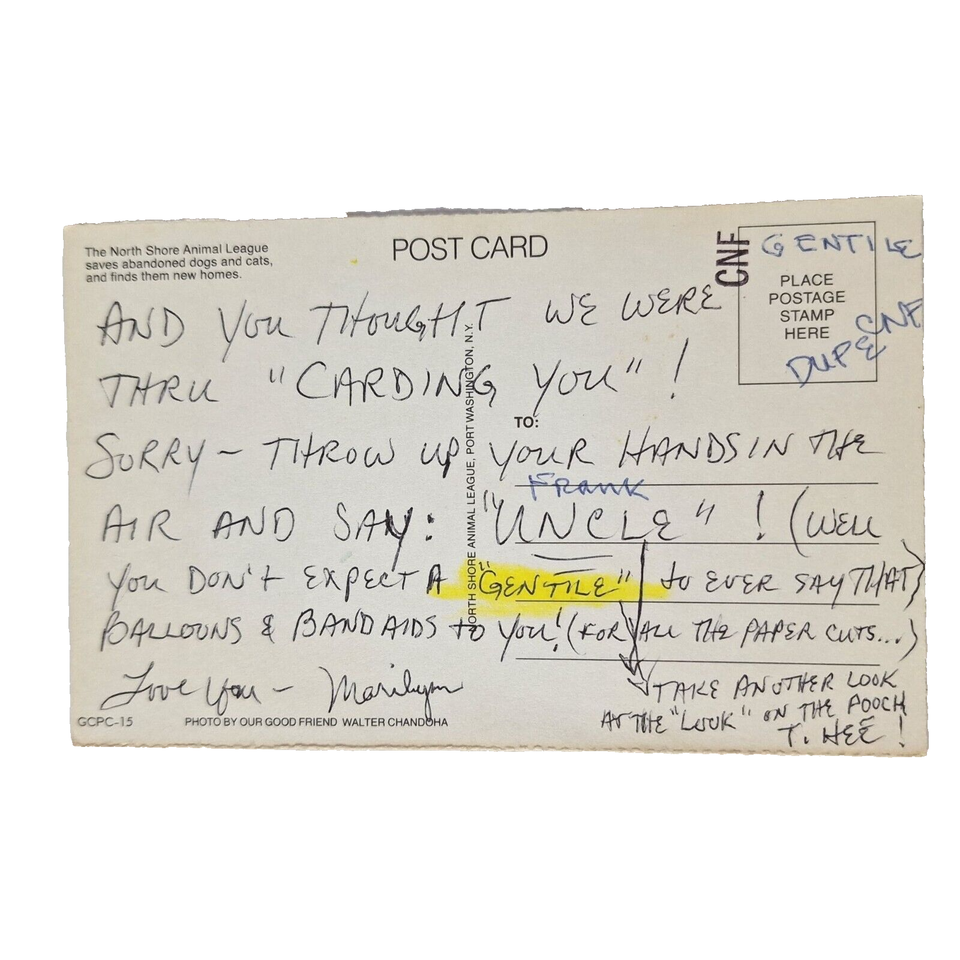 The North Shore Animal League
saves abandoned dogs and cats,
and finds them new homes.
POST CARD
CNF
GENTILE
PLACE
POSTAGE
STAMP
HERE
CNF
DUPE
AND YOU THOUGHT WE WERE
THRU "CARDING YOU"!
TO:
SORRY - THROW UP YOUR HANDS IN THE
Frank
AIR AND SAY: "UNCLE"! (WELL
YOU DON'T EXPECT A "GENTILE" to EVER SAY THAT)
BALLOONS & BANDAIDS to YOU! (FOR ALL THE PAPER CUTS...)
Love You - Marilynn
TAKE ANOTHER LOOK
AT THE "LOOK" ON THE POOCH
T. HEE!
NORTH SHORE ANIMAL LEAGUE, PORT WASHINGTON, N.Y.
GCPC-15
PHOTO BY OUR GOOD FRIEND WALTER CHANDOHA